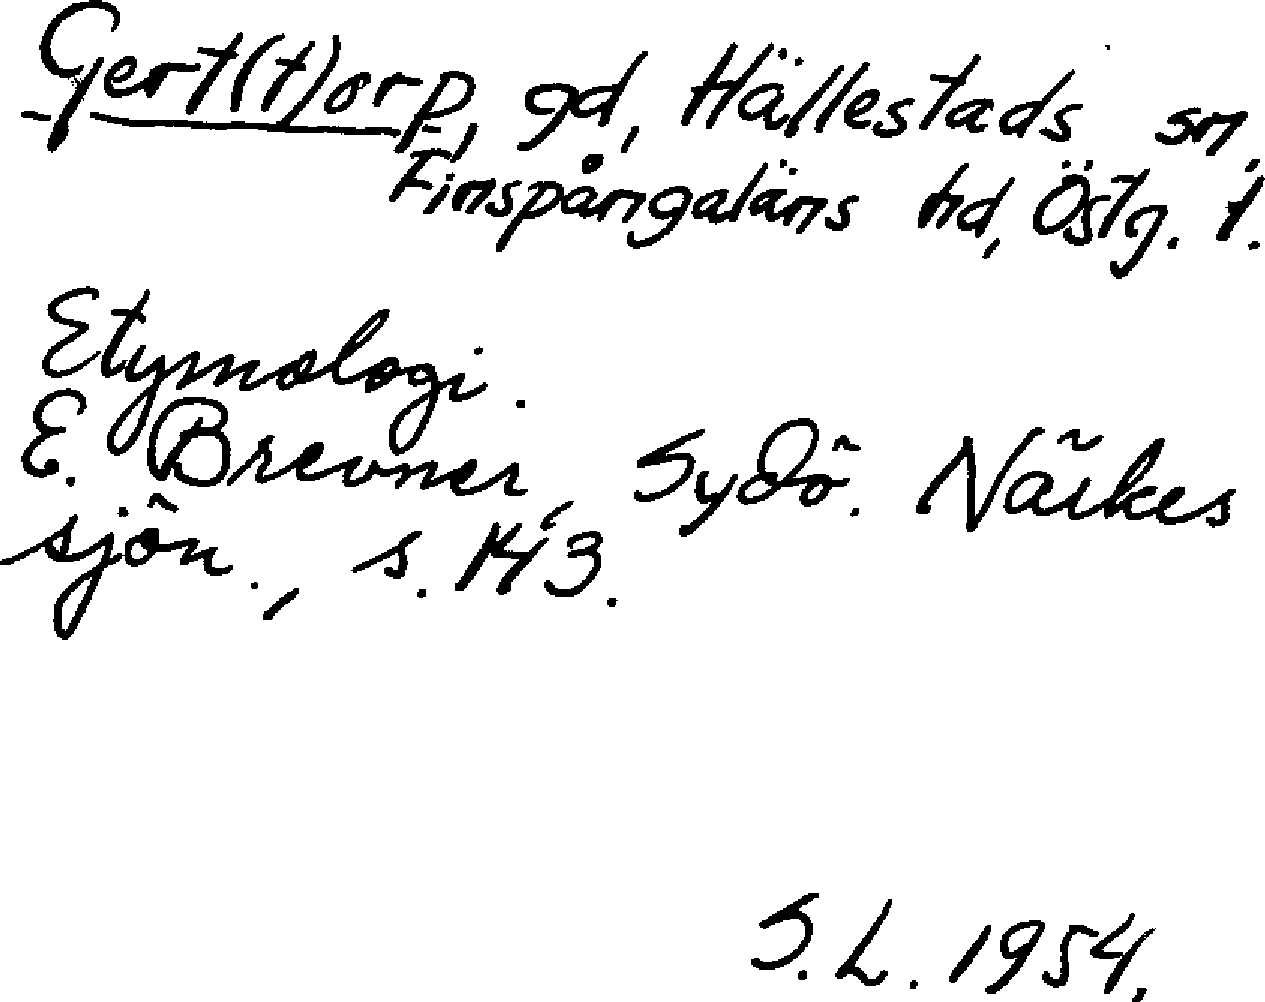 Gert(t)orp, gd, Hällestads sn,
Finspångaläns hd, Östg. l.
Etymologi.
E. Brevner, Sydö. Närkes
sjön., s. 143.
S.L. 1954.